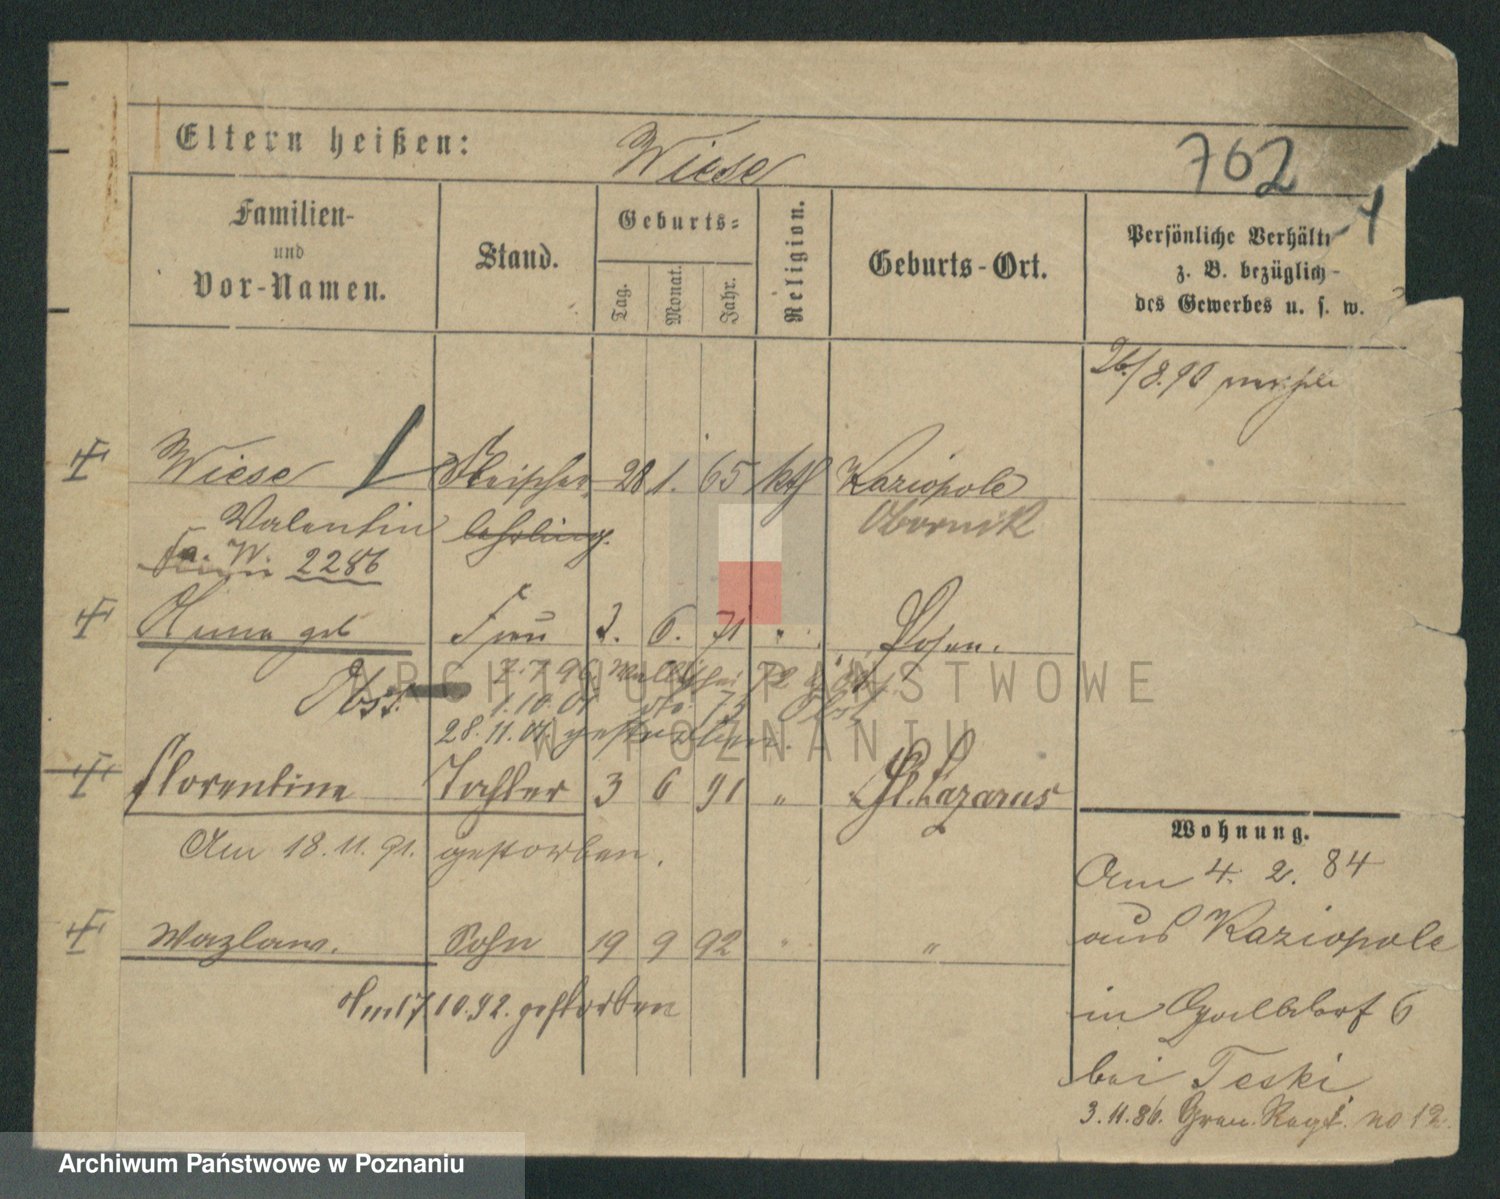 Eltern heißen:
Wiese
762
Familien-
und
Vor-Namen.
Stand.
Geburts-
Tag.
Monat.
Jahr.
Religion.
Geburts-Ort.
Persönliche Verhält
z. B. bezüglich
des Gewerbes u. s. w.
26/8.90
Wiese Fleischer 28 1. 65 kth Kaziopole
Valentin lehrling. Obornik
2286
Anna geb Frau 3. 6. 71 " Posen.
Obst.
1.10.01
28.11.01 gestorben.
Florentine Tochter 3 6 91 " St. Lazarus
Am 18.11.91. gestorben.
Wazlaw. Sohn 19 9 92 " "
Am 17 10.92. gestorben
Wohnung.
Am 4. 2. 84
aus Kaziopole
in 6
bei Teski
3.11.86. Gren. Regt. no 12.
ARCHIWUM PAŃSTWOWE
W POZNANIU
Archiwum Państwowe w Poznaniu